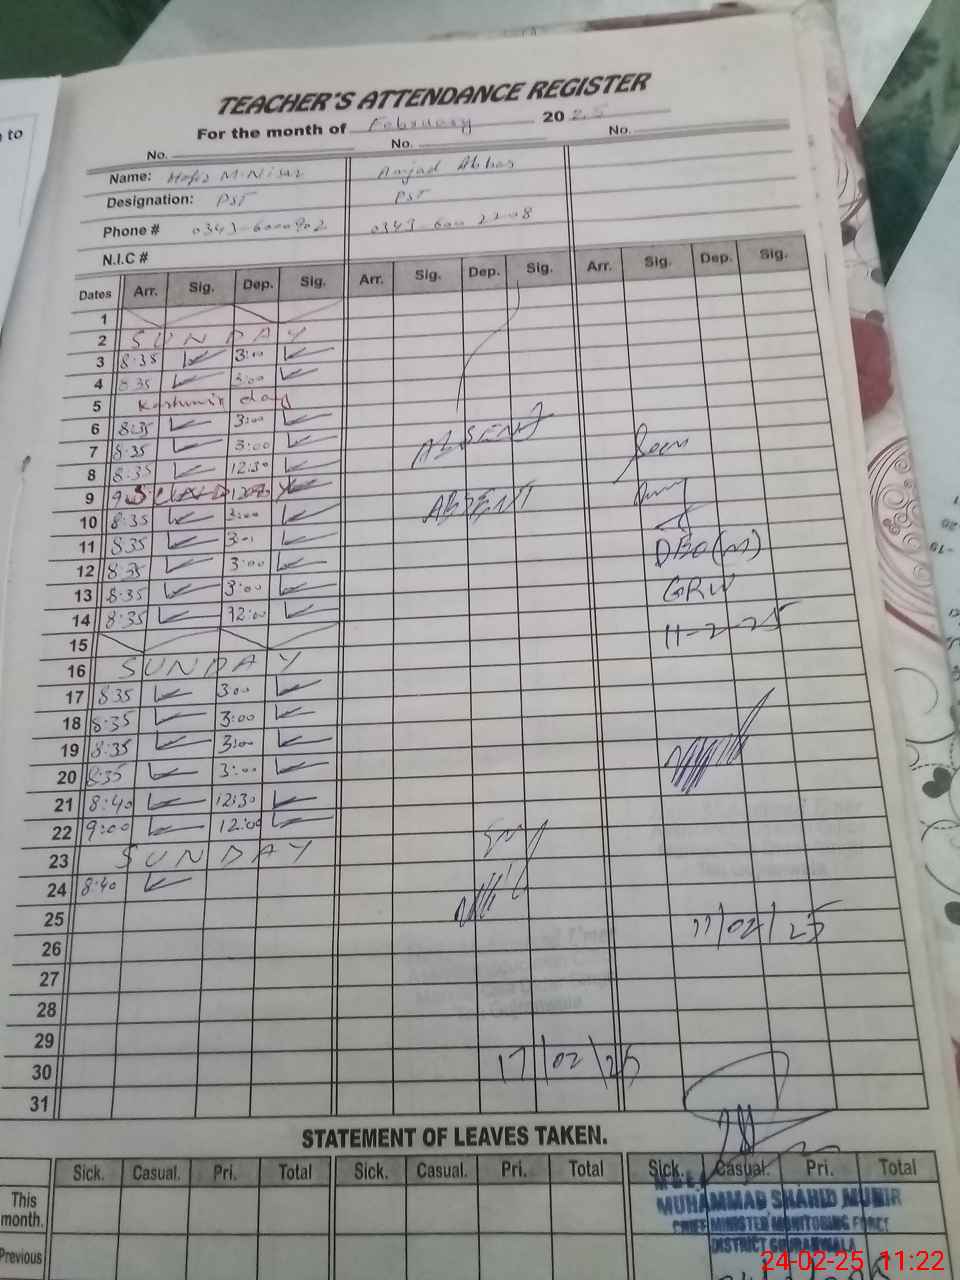 to
TEACHER'S ATTENDANCE REGISTER
For the month of February 2025
No. No. No.
Name: Hafiz M. Nisar Amjad Abbas
Designation: PST PST
Phone # 0343-6000902 0343-600 2208
N.I.C #
Dates Arr. Sig. Dep. Sig. Arr. Sig. Dep. Sig. Arr. Sig. Dep. Sig.
1
2 SUNDAY
3 8:35 3:00
4 8:35 3:00
5 Kashmir day
6 8:35 3:00
7 8:35 3:00 ABSENT
8 8:35 12:30
9 SUNDAY
10 8:35 3:00 ABSENT
11 8:35 3:01
12 8:35 3:00 DEO(M)
13 8:35 3:00 GRW
14 8:35 12:00 11-2-25
15
16 SUNDAY
17 8:35 3:00
18 8:35 3:00
19 8:35 3:00
20 8:35 3:00
21 8:40 12:30
22 9:00 12:00
23 SUNDAY
24 8:40
25 11/02/25
26
27
28
29
30 17/02/25
31
STATEMENT OF LEAVES TAKEN.
Sick. Casual. Pri. Total Sick. Casual. Pri. Total Sick. Casual. Pri. Total
This month.
Previous
MUHAMMAD SHAHID MUNIR
CHIEF MINISTER MONITORING FORCE
DISTRICT GUJRANWALA
24-02-25 11:22